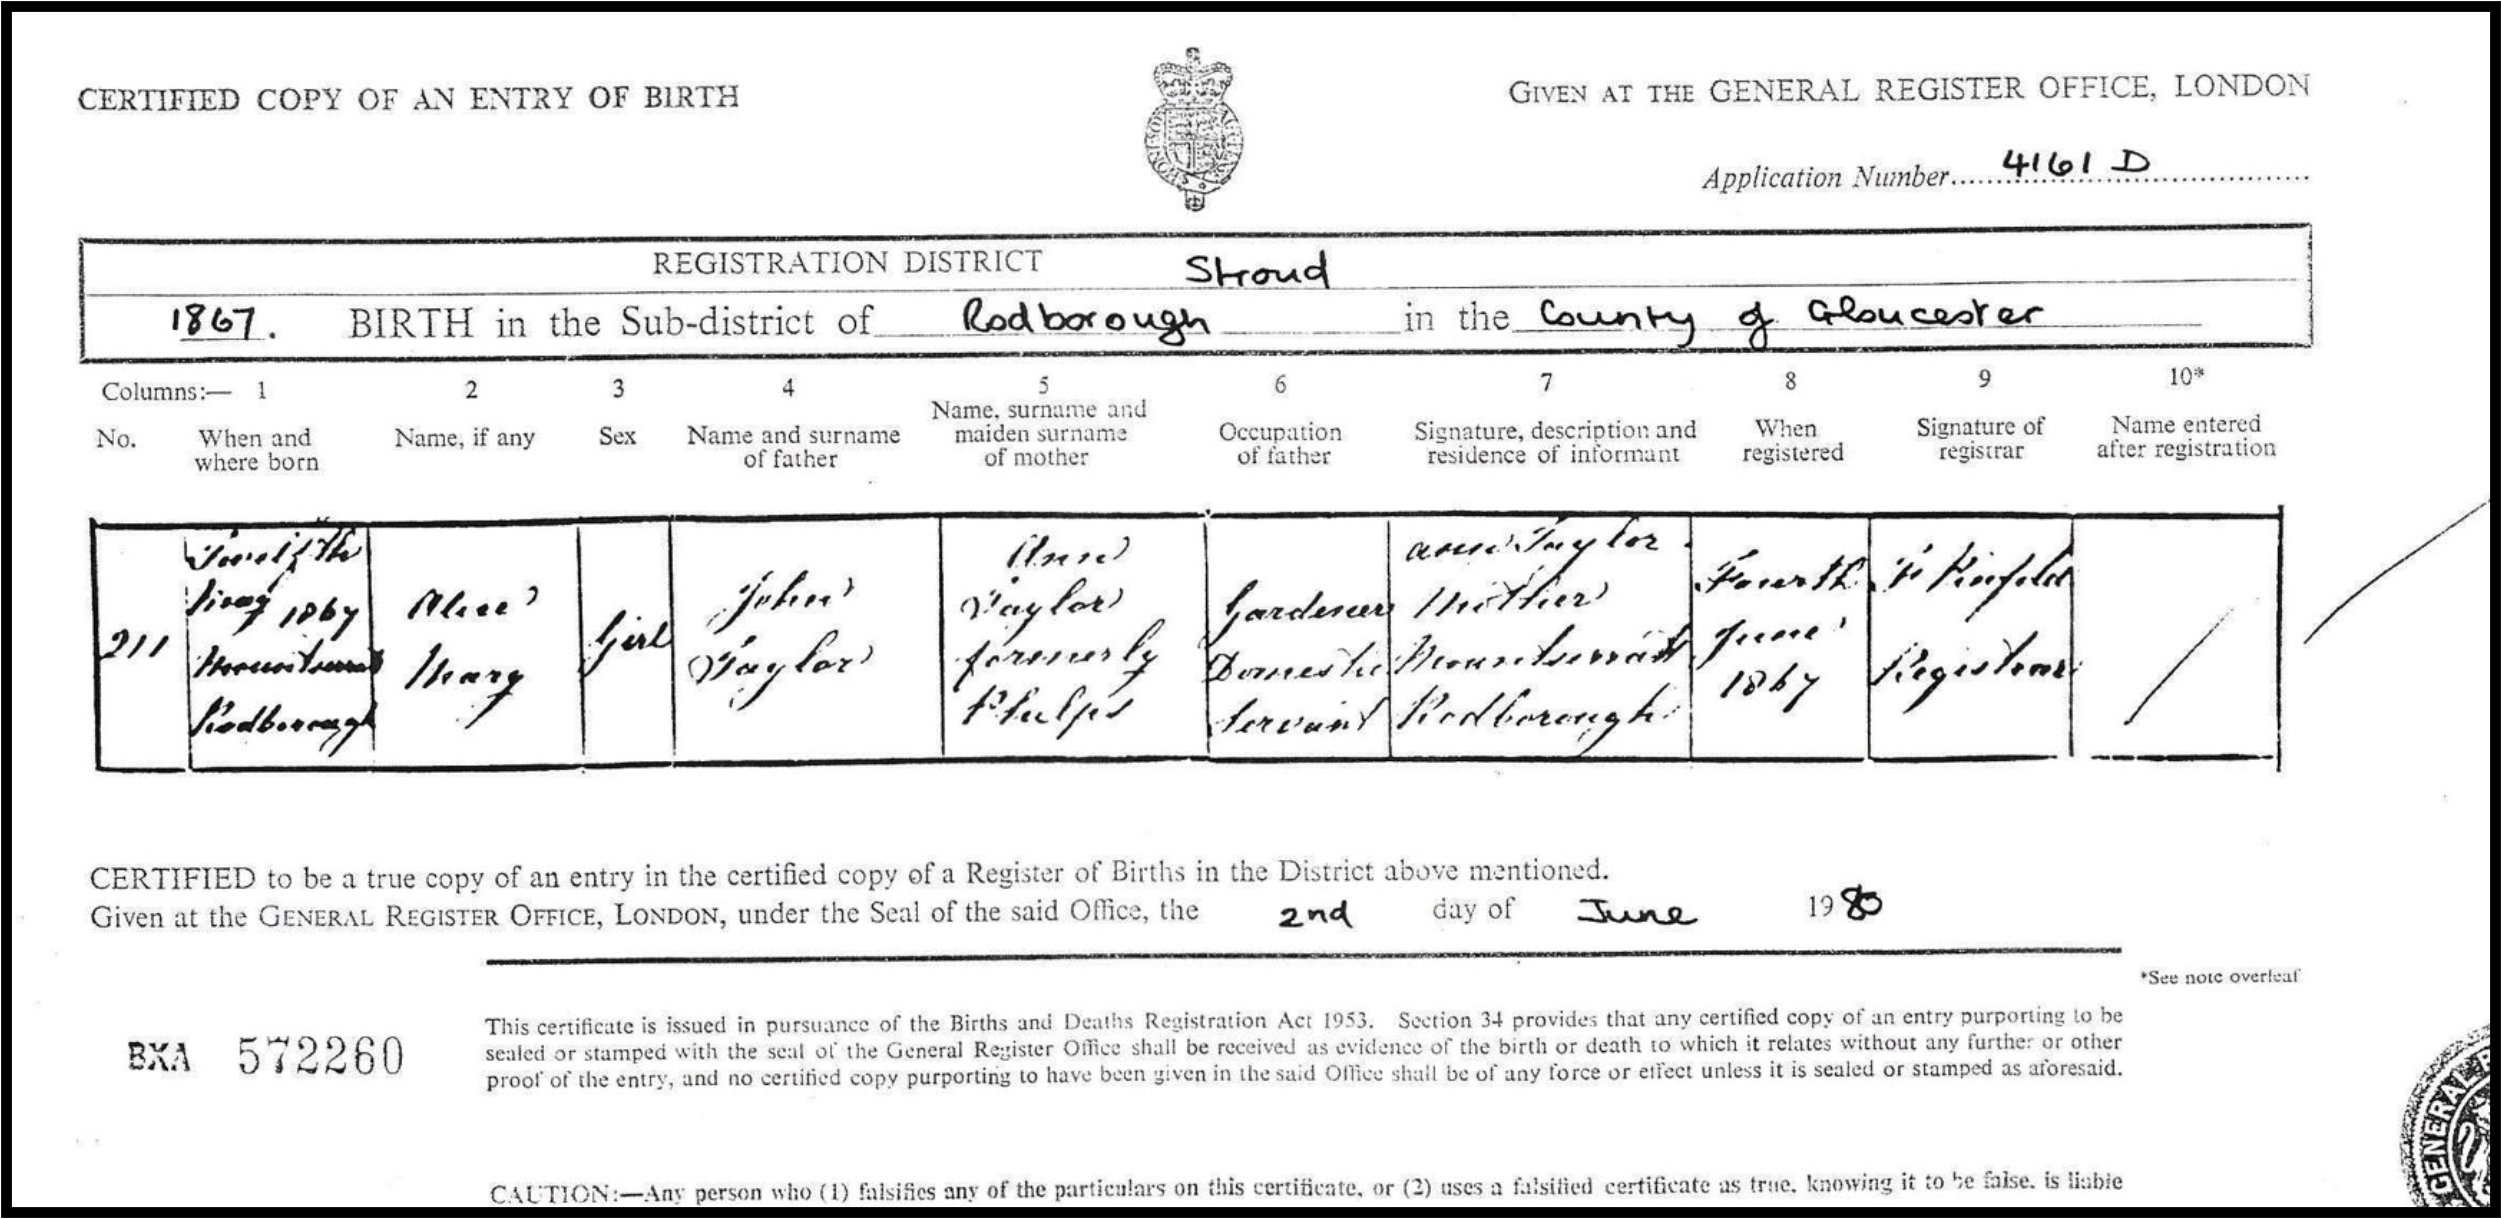 CERTIFIED COPY OF AN ENTRY OF BIRTH
GIVEN AT THE GENERAL REGISTER OFFICE, LONDON
Application Number 4161 D
REGISTRATION DISTRICT Stroud
1867. BIRTH in the Sub-district of Rodborough in the County of Gloucester
Columns:— 1 2 3 4 5 6 7 8 9 10*
No.
When and
where born
Name, if any
Sex
Name and surname
of father
Name, surname and
maiden surname
of mother
Occupation
of father
Signature, description and
residence of informant
When
registered
Signature of
registrar
Name entered
after registration
211
Twelfth
May 1867
Rodborough
Alice
Mary
Girl
John
Taylor
Ann
Taylor
formerly
Phelps
Gardener
Domestic
Servant
Ann Taylor
Mother
Rodborough
Fourth
June
1867
Registrar
CERTIFIED to be a true copy of an entry in the certified copy of a Register of Births in the District above mentioned.
Given at the GENERAL REGISTER OFFICE, LONDON, under the Seal of the said Office, the 2nd day of June 1980
*See note overleaf
BXA 572260
This certificate is issued in pursuance of the Births and Deaths Registration Act 1953. Section 34 provides that any certified copy of an entry purporting to be
sealed or stamped with the seal of the General Register Office shall be received as evidence of the birth or death to which it relates without any further or other
proof of the entry, and no certified copy purporting to have been given in the said Office shall be of any force or effect unless it is sealed or stamped as aforesaid.
CAUTION:—Any person who (1) falsifies any of the particulars on this certificate, or (2) uses a falsified certificate as true, knowing it to be false, is liable
GENERAL R